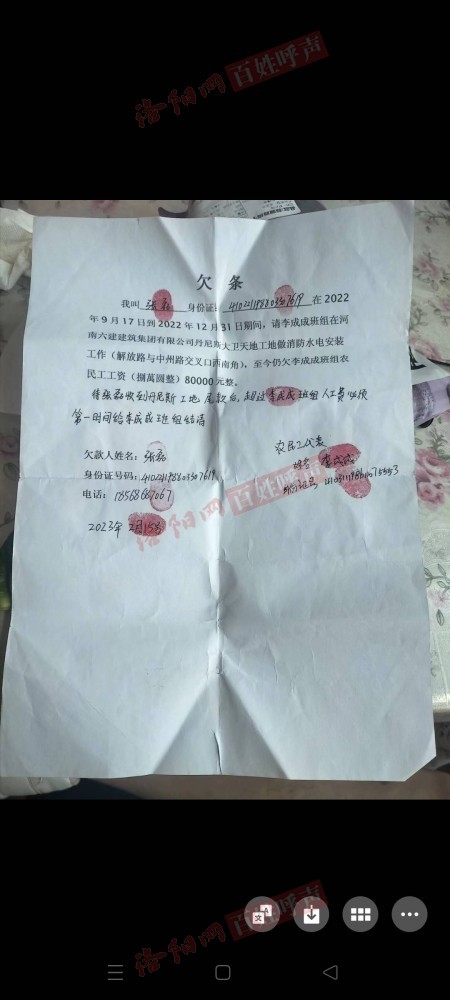 洛阳网 百姓呼声
欠 条
我叫 张磊 身份证: 410221198803507619 在 2022
年 9 月 17 日到 2022 年 12 月 31 日期间，请李成成班组在河
南六建建筑集团有限公司丹尼斯大卫天地工地做消防水电安装
工作（解放路与中州路交叉口西南角），至今仍欠李成成班组农
民工工资（捌萬圆整）80000 元整。
待张磊收到丹尼斯工地尾款后，超过李成成班组人工费必须
第一时间给李成成班组结清
农民工代表
欠款人姓名: 张磊
姓名 李成成
身份证号码: 410221198803507619
身份证号
电话: 18568687067
2023年2月15号
洛阳网 百姓呼声
洛阳网 百姓呼声